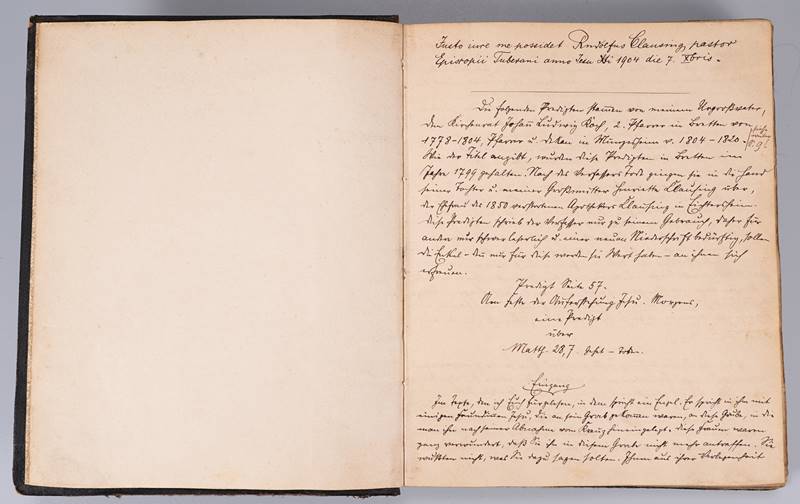 Iusto iure me possidet Rudolfus Clausing, pastor
Episcopii Tuberani anno Iesu Xti 1904 die 7. Xbris.
Die folgenden Predigten stammen von meinem Urgroßvater,
dem Kirchenrat Johann Ludwig Koch, 2. Pfarrer in Bretten von
1778-1804, Pfarrer u. Dekan in Münzesheim v. 1804-1820.
Wie der Titel angibt, wurden diese Predigten in Bretten im
Jahre 1799 gehalten. Nach des Verfassers Tode gingen sie in die Hand
seiner Tochter u. meiner Großmutter Henriette Clausing über,
der Ehefrau des 1850 verstorbenen Apothekers Clausing in Eichtersheim.
Diese Predigten schrieb der Verfasser nur zu seinem Gebrauch, daher für
andere nur schwer leserlich u. einer neuen Niederschrift bedürftig, sollen
die Enkel - denn nur für diese werden sie Wert haben - an ihnen sich
erfreuen.
Predigt Seite 57.
Am Feste der Auferstehung Jesu. Morgens,
eine Predigt
über
Matth. 28,7.
Eingang
Im Texte, den ich Euch vorgelesen, in dem spricht ein Engel. Er spricht in ihm mit
einigen Freundinnen Jesu, die an sein Grab gekommen waren, an diese Höhle, in die
man ihn nach seiner Abnahme vom Kreuz hineingelegt. Diese Frauen waren
ganz verwundert, daß Sie ihn in diesem Grabe nicht mehr antraffen. Sie
wußten nicht, was Sie dazu sagen sollten. Ihnen aus ihrer Verlegenheit